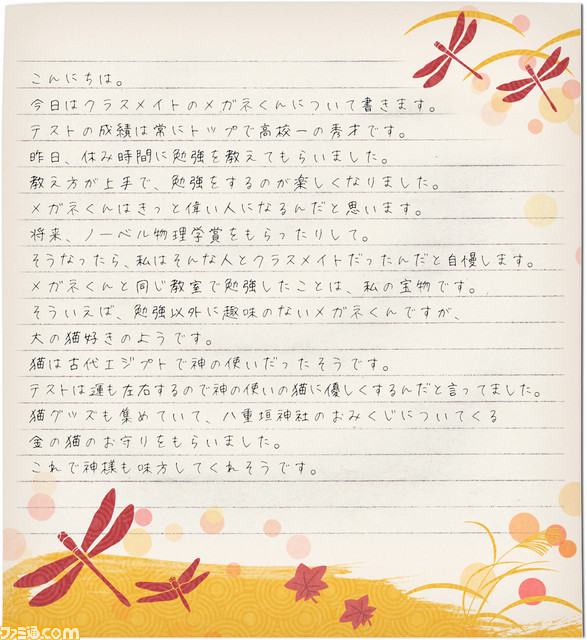 こんにちは。
今日はクラスメイトのメガネくんについて書きます。
テストの成績は常にトップで高校一の秀才です。
昨日、休み時間に勉強を教えてもらいました。
教え方が上手で、勉強をするのが楽しくなりました。
メガネくんはきっと偉い人になるんだと思います。
将来、ノーベル物理学賞をもらったりして。
そうなったら、私はそんな人とクラスメイトだったんだと自慢します。
メガネくんと同じ教室で勉強したことは、私の宝物です。
そういえば、勉強以外に趣味のないメガネくんですが、
大の猫好きのようです。
猫は古代エジプトで神の使いだったそうです。
テストは運も左右するので神の使いの猫に優しくするんだと言ってました。
猫グッズも集めていて、八重垣神社のおみくじについてくる
金の猫のお守りをもらいました。
これで神様も味方してくれそうです。
ファミ通.com